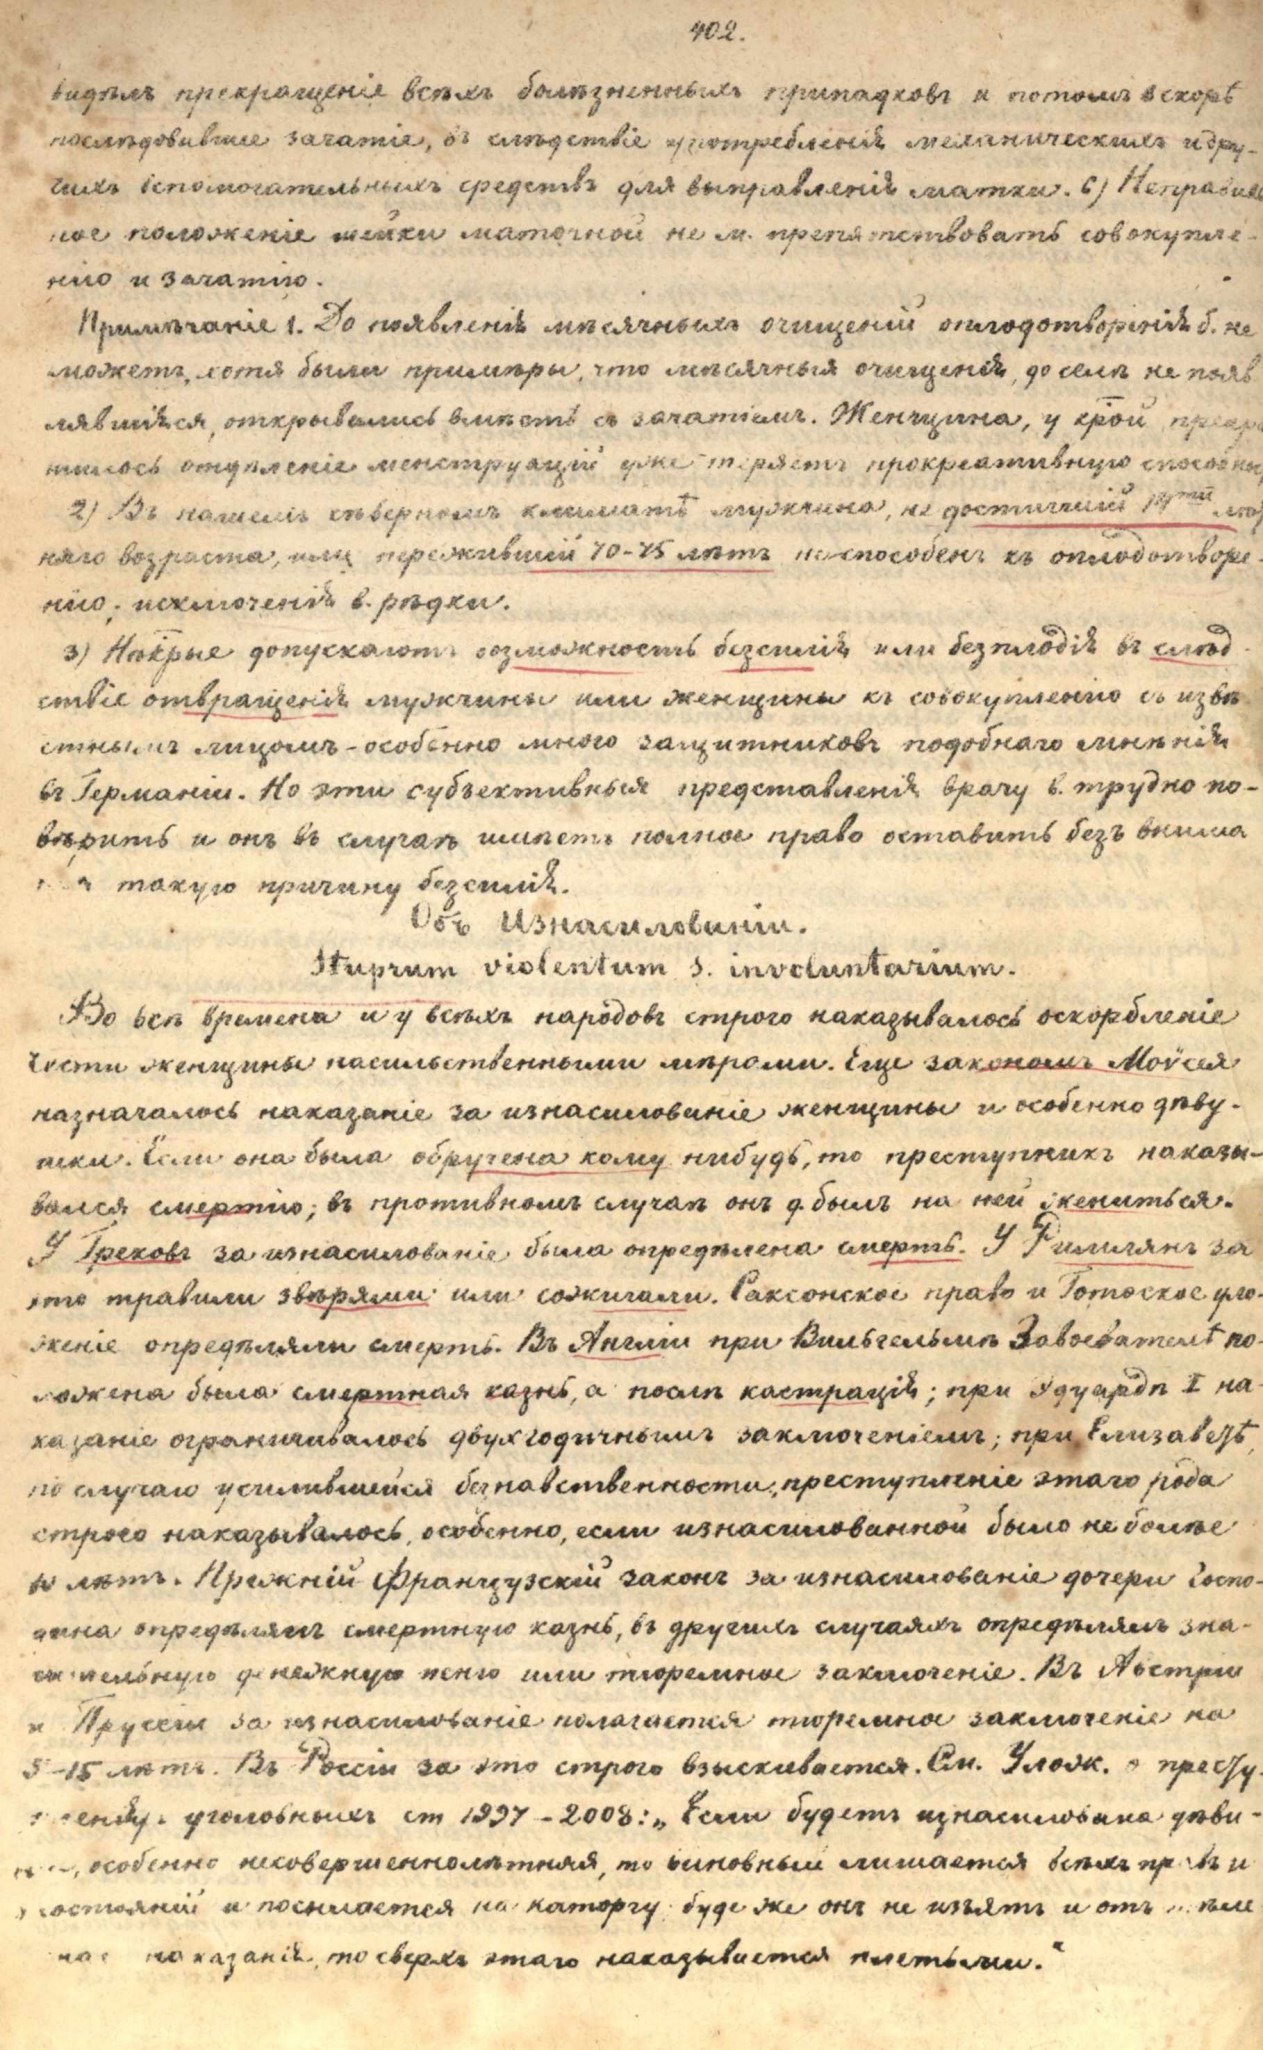 402.
видѣлъ прекращеніе всѣхъ болѣзненныхъ припадковъ и потомъ вскорѣ
послѣдовавшее зачатіе, въ слѣдствіе употребленія механическихъ и дру-
гихъ вспомогательныхъ средствъ для выправленія матки. 6) Неправиль
ное положеніе шейки маточной не м. препятствовать совокупле-
нію и зачатію.
Примѣчаніе 1. До появленія мѣсячныхъ очищеній оплодотворенія б. не
можетъ, хотя были примѣры, что мѣсячныя очищенія, доселѣ не появ
лявшіяся, открывались вмѣстѣ съ зачатіемъ. Женщина, у крой прекра
тилось отдѣленіе менструацій уже теряетъ прокреативную способнос
2) Въ нашемъ сѣверномъ климатѣ мужчина, не достигшій 14ти лѣт
няго возраста, или пережившій 70-75 лѣтъ не способенъ къ оплодотворе-
нію; исключенія в. рѣдки.
3) Нѣкрые допускаютъ возможность безсилія или безплодія въ слѣд-
ствіе отвращенія мужчины или женщины къ совокупленію съ извѣ
стнымъ лицомъ - особенно много защитниковъ подобнаго мнѣнія
въ Германіи. Но эти субъективныя представленія врачу в. трудно по-
вѣрить и онъ въ случаѣ имѣетъ полное право оставить безъ внима
такую причину безсилія.
Объ Изнасиловиніи.
Stuprum violentum s. involuntarium.
Во всѣ времена и у всѣхъ народовъ строго наказывалось оскорбленіе
чести женщины насильственными мѣрами. Еще закономъ Моѵсея
назначалось наказаніе за изнасилованіе женщины и особенно дѣву-
шки. Если она была обручена кому нибудь, то преступникъ наказы-
вался смертію; въ противномъ случаѣ онъ д. былъ на ней жениться.
У Грековъ за изнасилованіе была опредѣлена смерть. У Римлянъ за
это травили звѣрями или сожигали. Саксонское право и Готоское уло-
женіе опредѣляли смерть. Въ Англіи при Вильгельмѣ Завоевателѣ по-
ложена была смертная казнь, а послѣ кастрація; при Эдуардѣ I на-
казаніе ограничивалось двухгодичнымъ заключеніемъ; при Елизаветѣ,
по случаю усилившейся безнавственности, преступленіе этаго рода
строго наказывалось, особенно, если изнасилованной было не болѣе
10 лѣтъ. Прежній Французскій законъ за изнасилованіе дочери Госпо-
дина опредѣлялъ смертную казнь, въ другихъ случаяхъ опредѣлялъ зна-
чительную денежную пеню или тюремное заключеніе. Въ Австріи
и Пруссіи за изнасилованіе полагается тюремное заключеніе на
5-15 лѣтъ. Въ Россіи за это строго взыскивается. См. Улож. о престу-
уголовныхъ ст 1997-2008: „Если будетъ изнасилована дѣви-
особенно несовершеннолѣтняя, то виновный лишается всѣхъ правъ и
состояній и посылается на каторгу буде же онъ не изъятъ и отъ тѣле
наго наказанія, то сверхъ этаго наказывается плетьми."